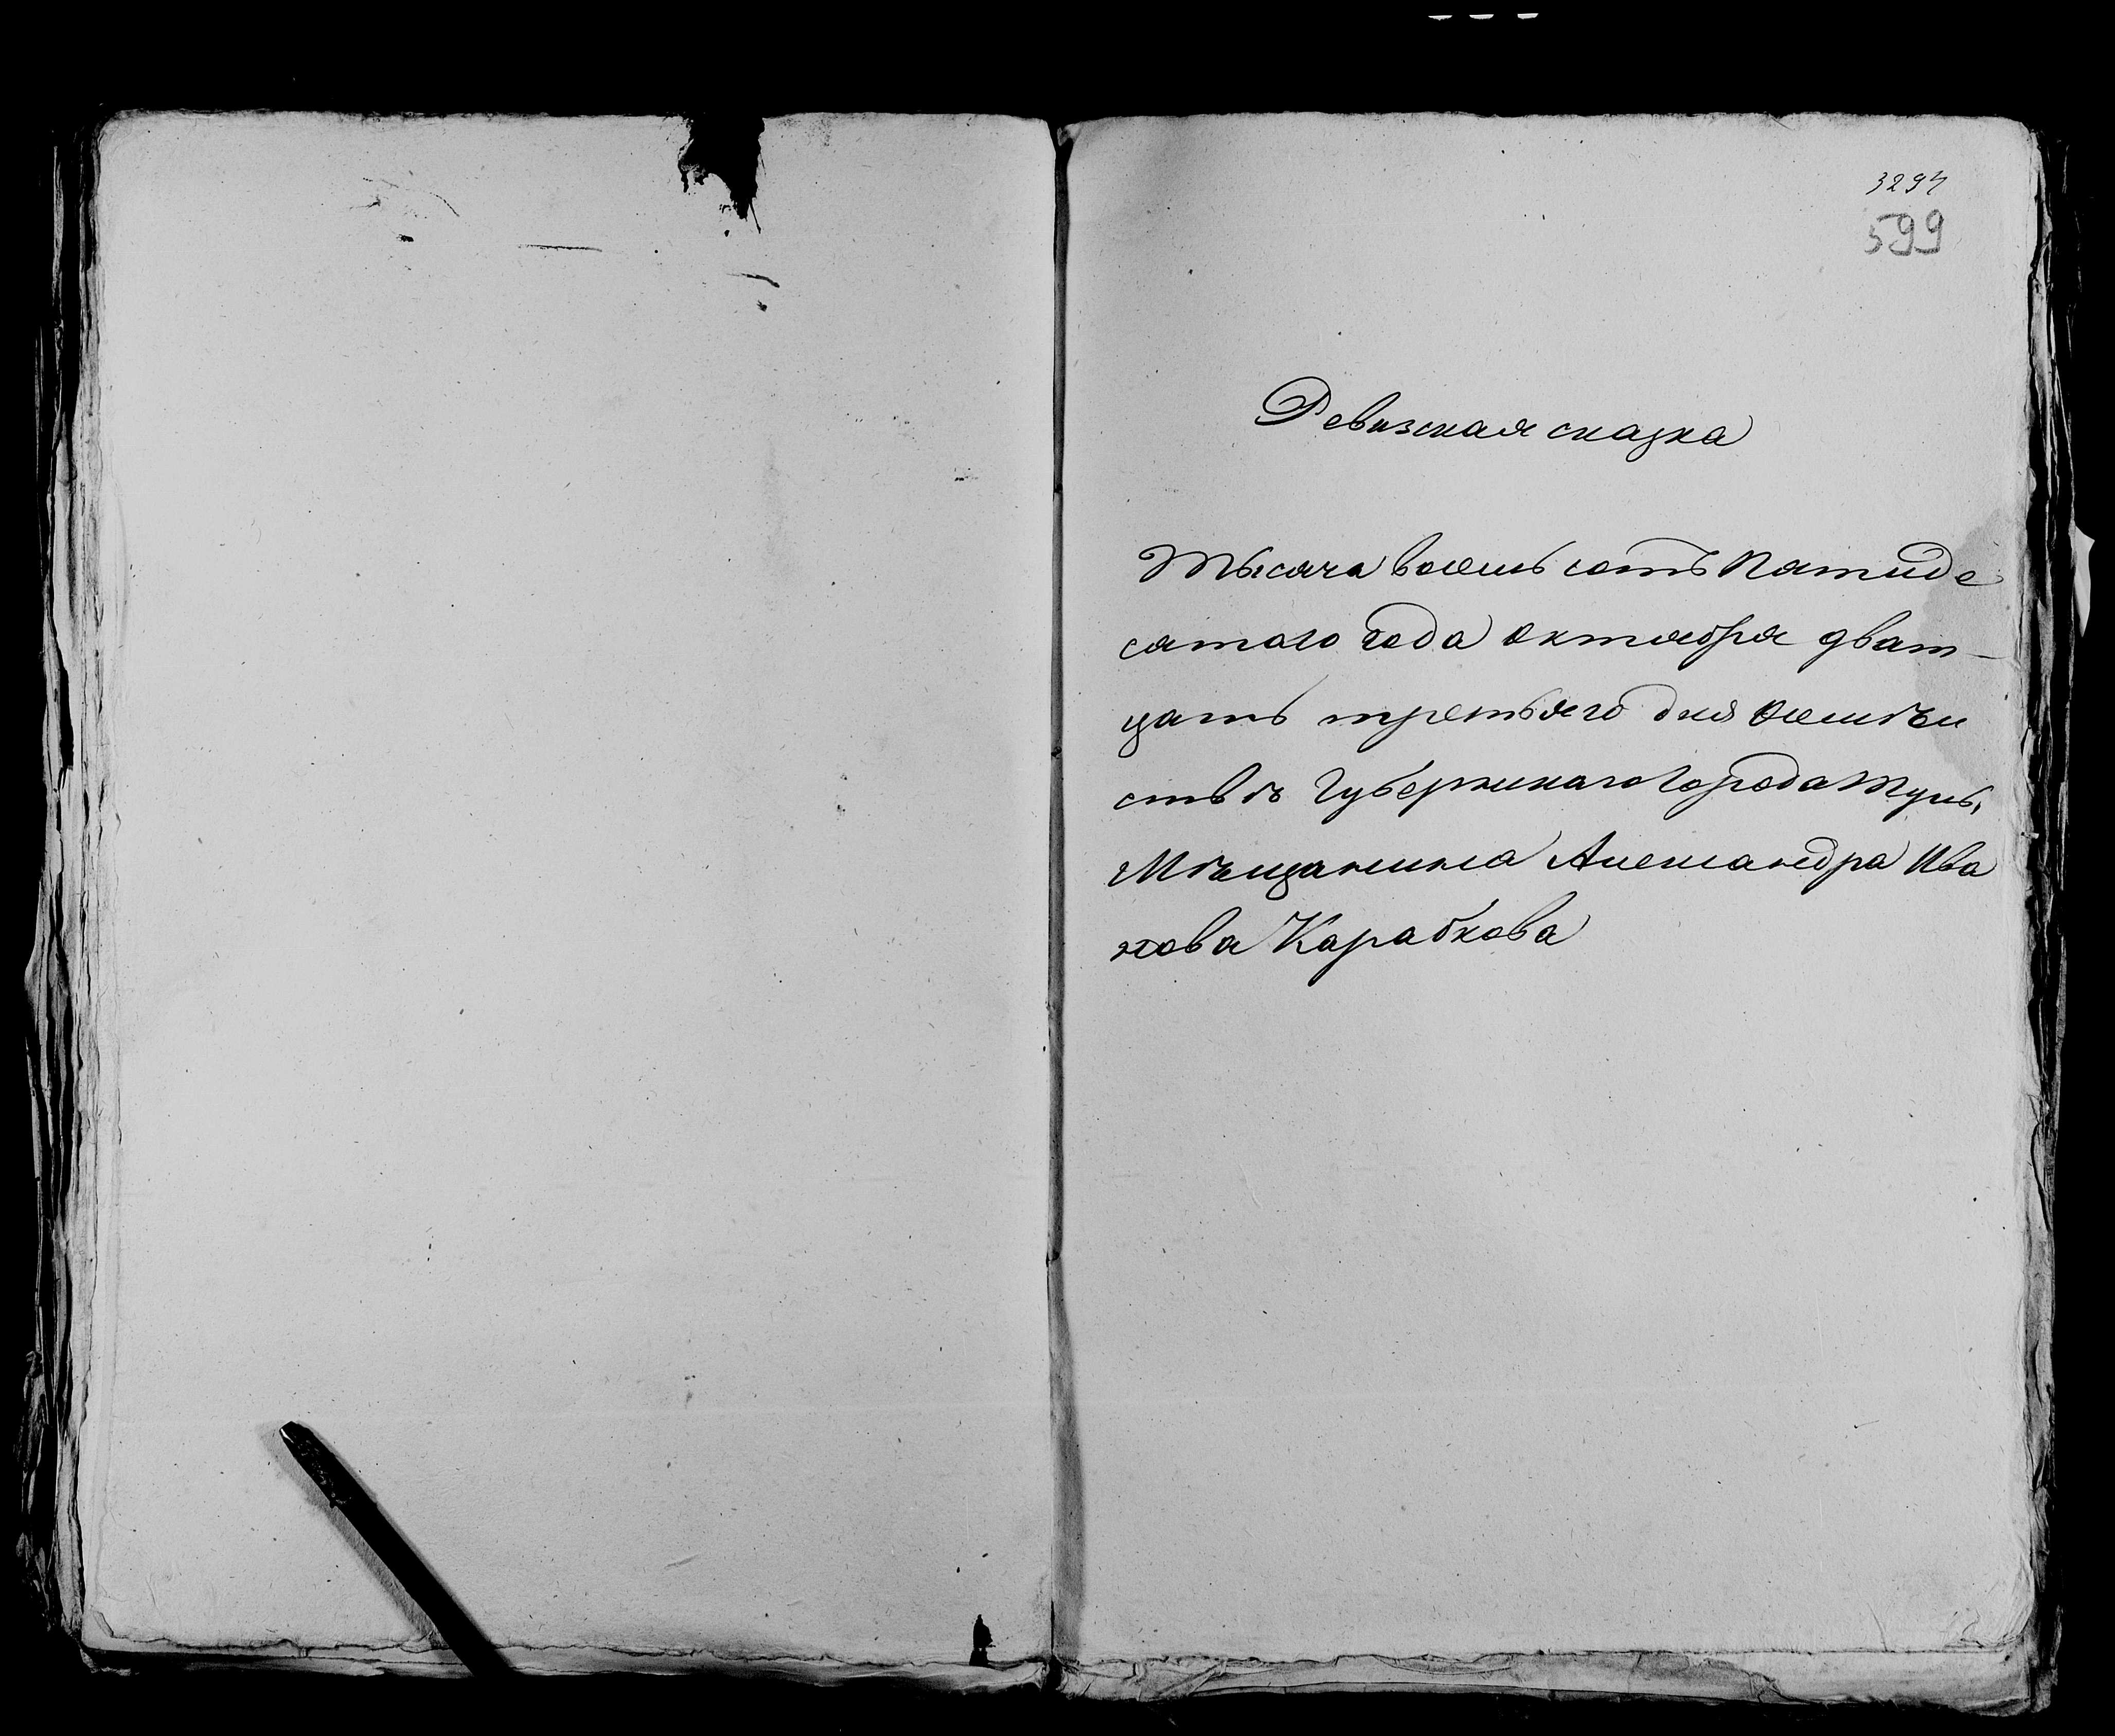 3294
599
Ревизская сказка
Тысяча восемь сотъ Пятиде
сятого года Октября дват-
цать третьяго дня Осемѣи
ствѣ Губернинаго Города Тулы,
Мѣщанина Александра Ива
нова Карабкова